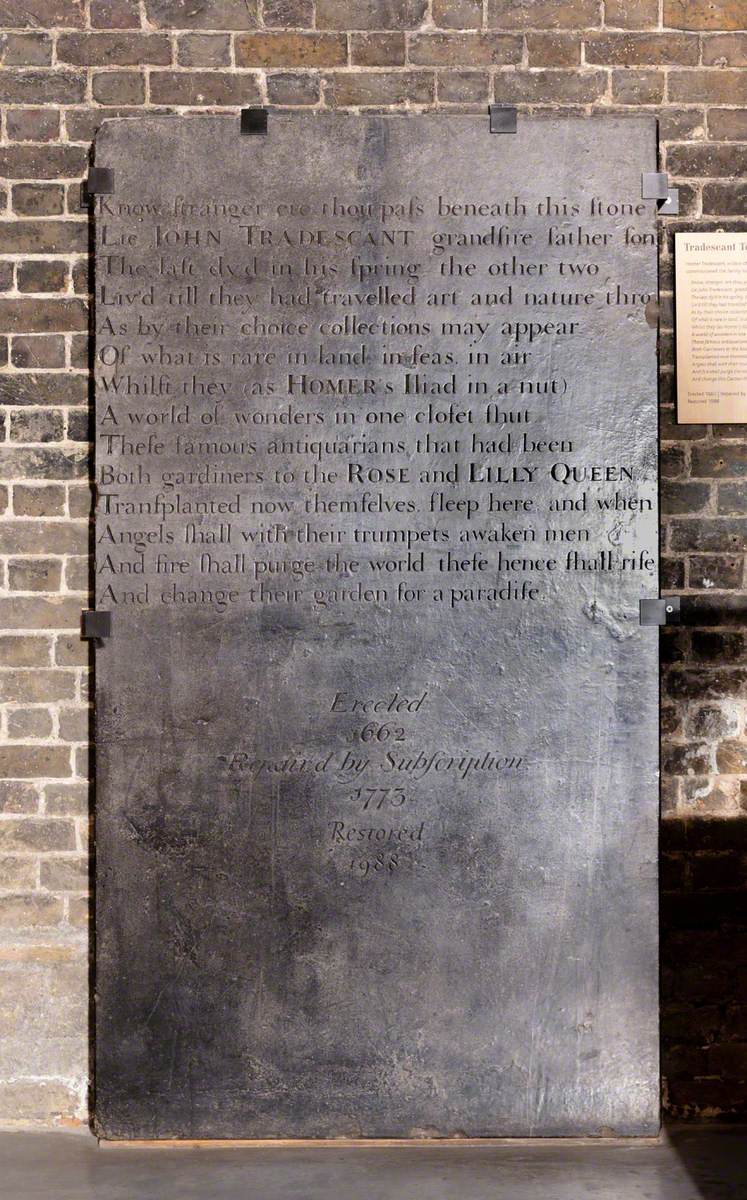 Know ſtranger ere thou paſs beneath this ſtone
Lie JOHN TRADESCANT grandſire father ſon
The laſt dy'd in his ſpring, the other two,
Liv'd till they had travelled art and nature thro'
As by their choice collections may appear
Of what is rare in land, in ſeas, in air
Whilſt they (as HOMER's Iliad in a nut)
A world of wonders in one cloſet ſhut
Theſe famous antiquarians that had been
Both gardiners to the ROSE and LILLY QUEEN,
Tranſplanted now themſelves, ſleep here, and when
Angels ſhall with their trumpets awaken men
And fire ſhall purge the world theſe hence ſhall riſe
And change their garden for a paradiſe.
Erected
1662
Repair'd by Subſcription
1773
Restored
1988
Tradescant To